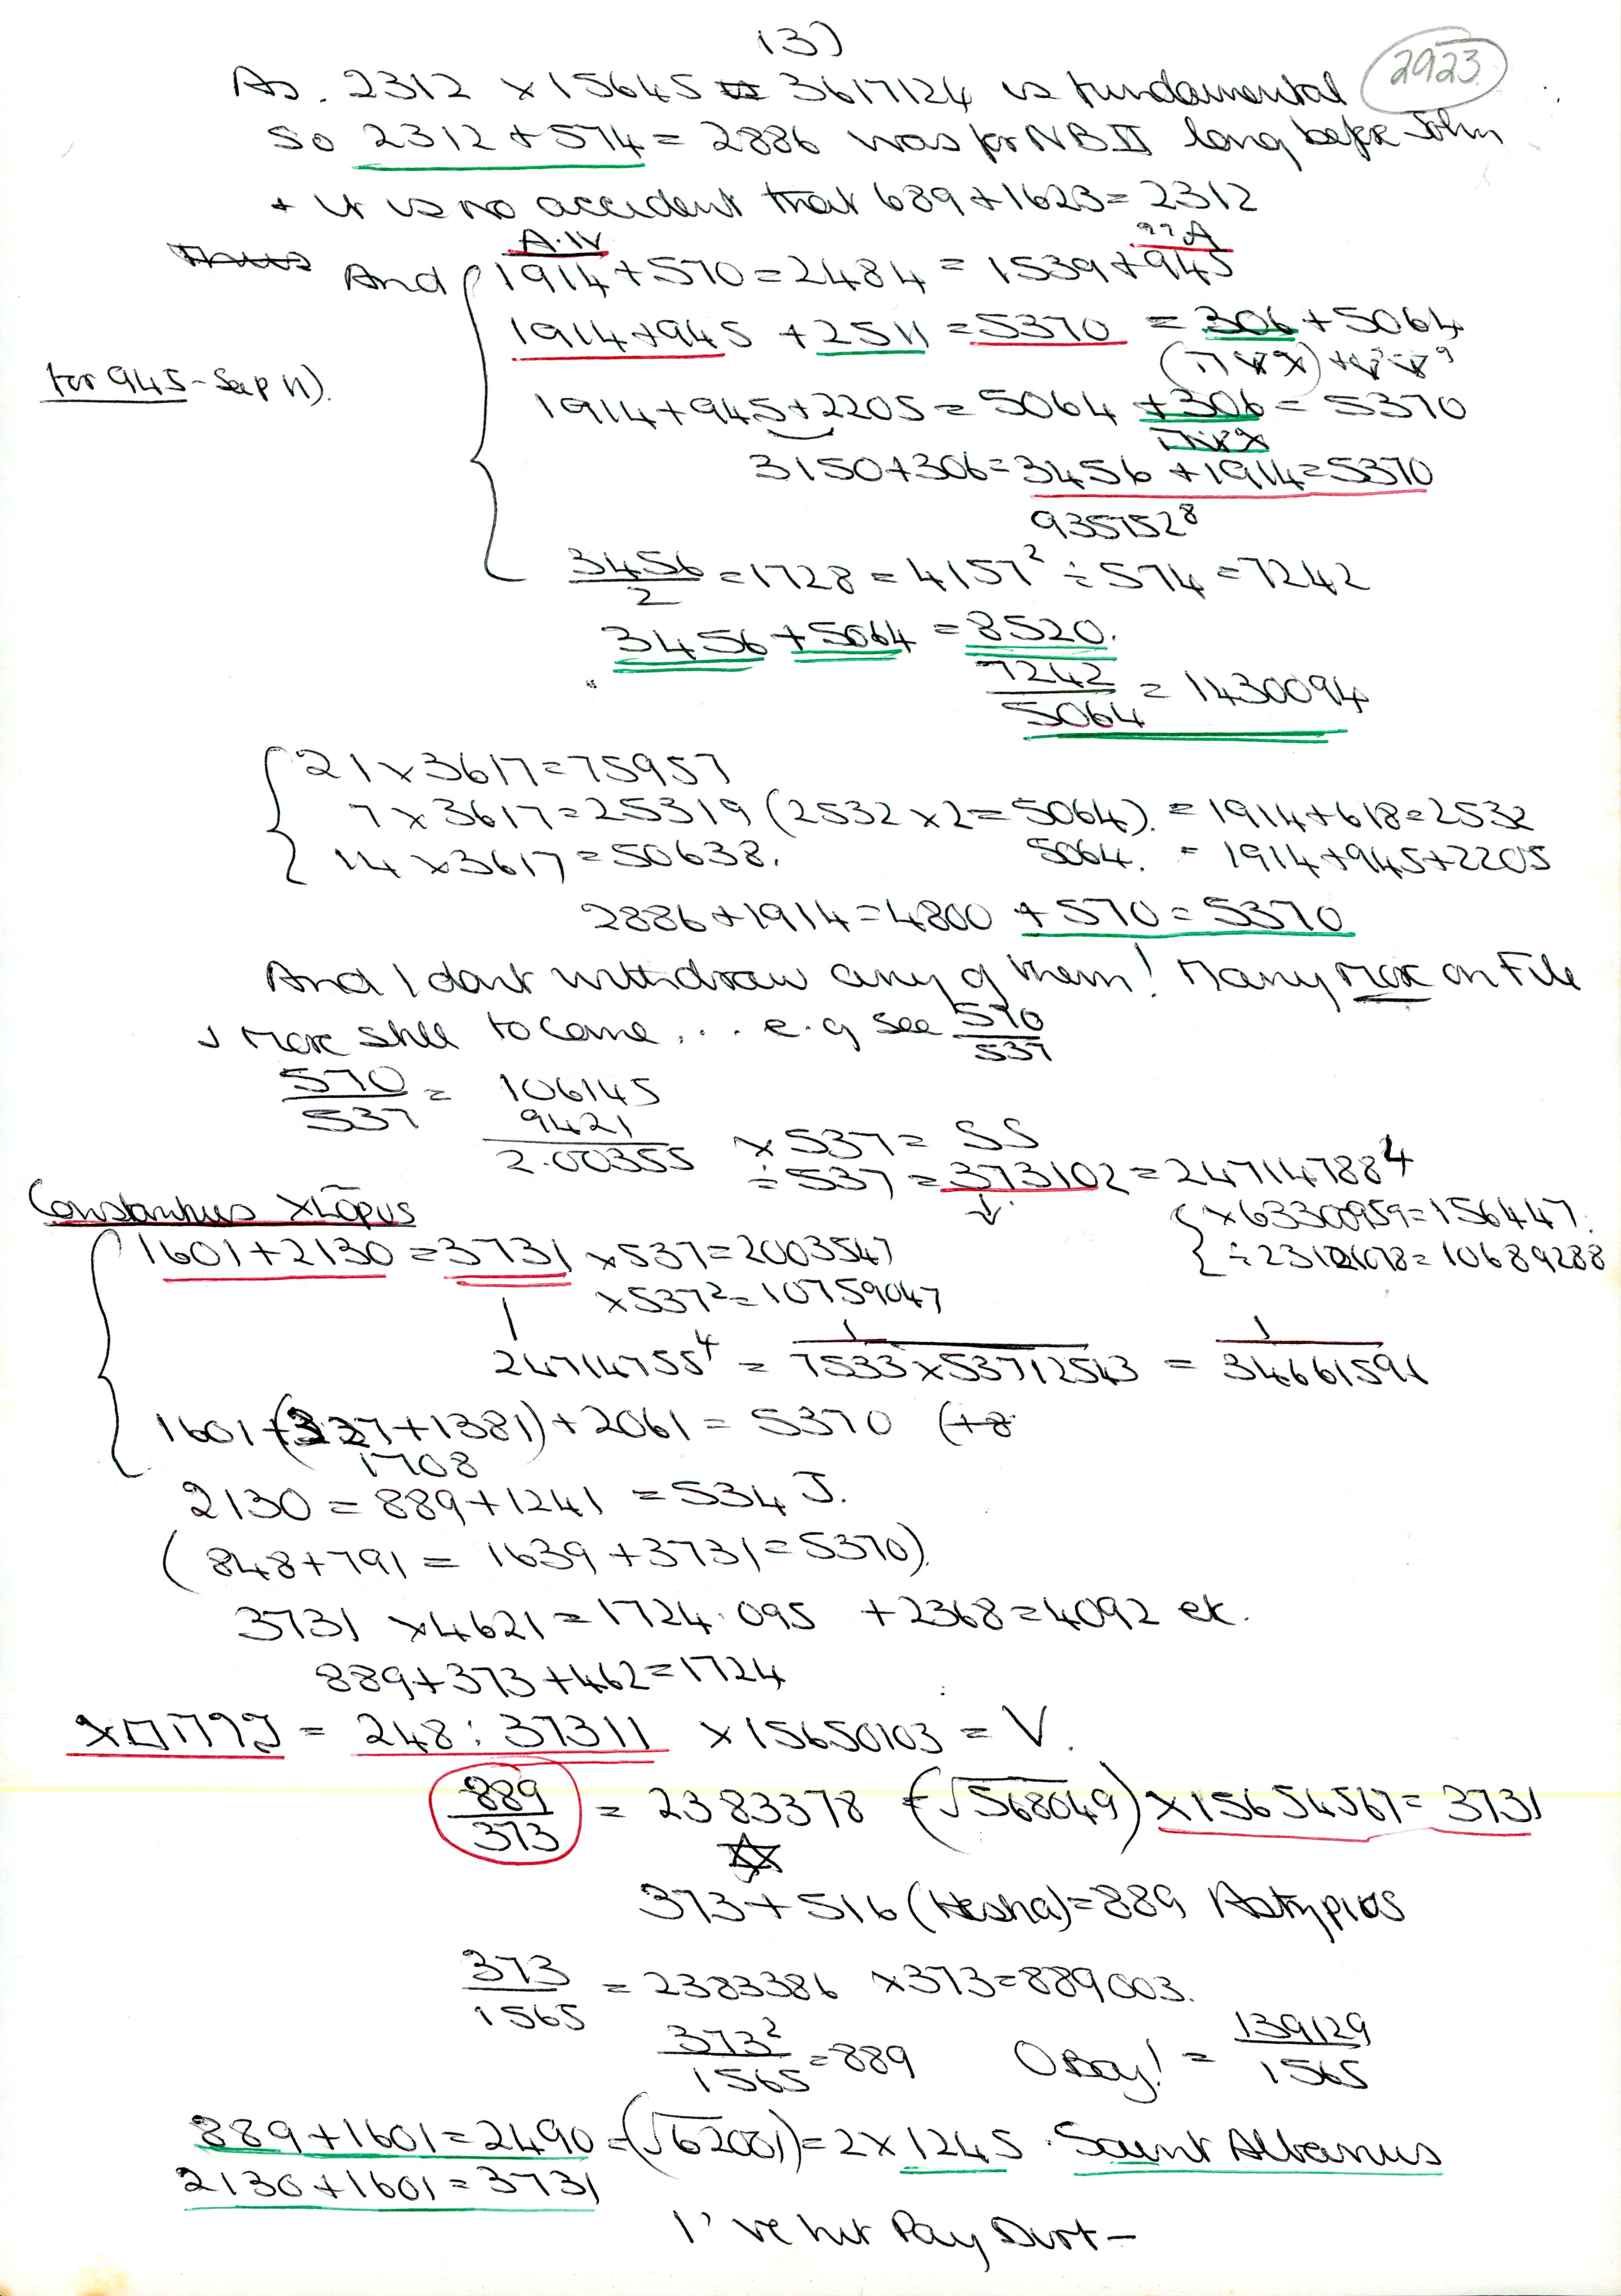 13)
2923
As. 2312 × 15645 = 3617124 is fundamental
So 2312 + 574 = 2886 was for NB II long before John
+ it is no accident that 689 + 1623 = 2312
A.IV
And 1914 + 570 = 2484 = 1539 + 945
1914 + 945 + 2511 = 5370 = 306 + 5064
for 945 - See p 11).
1914 + 945 + 2205 = 5064 + 306 = 5370
3150 + 306 = 3456 + 1914 = 5370
935752⁸
3456/2 = 1728 = 4157² ÷ 574 = 7242
3456 + 5064 = 8520.
7242/5064 = 1430094
21 × 3617 = 75957
7 × 3617 = 25319 (2532 × 2 = 5064). = 1914 + 618 = 2532
14 × 3617 = 50638. 5064. = 1914 + 945 + 2205
2886 + 1914 = 4800 + 570 = 5370
And I dont withdraw any of them! Many more on File
& more still to come... e.g see 570/537
570/537 = 106145
9421
2.00355 × 537 = SS
÷ 537 = 373102 = 24714788⁴
Constantius Xlōpus
× 6330959 = 156447.
1601 + 2130 = 3731 × 537 = 2003547
× 537² = 10759047
1/24714755⁴ = 1/7533 × 53712543 = 1/34661591
1601 + (327 + 1381) + 2061 = 5370 (+8
1708
2130 = 889 + 1241 = 534 J.
(848 + 791 = 1639 + 3731 = 5370).
3731 × 4621 = 1724.095 + 2368 = 4092 etc.
889 + 373 + 462 = 1724
= 248 : 37311 × 15650103 = V.
889/373 = 2383378 (=√568049) × 15654567 = 3731
373 + 516 (Hesha) = 889
373/1565 = 2383386 × 373 = 889003.
373²/1565 = 889 O Boy! = 139129/1565
889 + 1601 = 2490 = (√62001) = 2 × 1245 · Saint Albanus
2130 + 1601 = 3731
I've hit Pay Dirt –